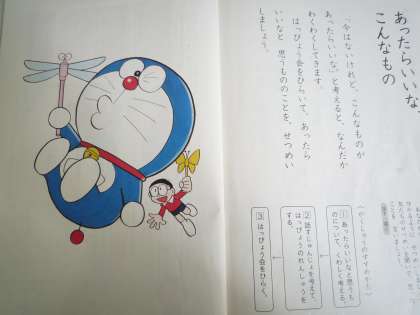 あったらいいな、
こんなもの
「今はないけれど、こんなものが
あったらいいな」と考えると、なんだか
わくわくしてきます。
はっぴょう会をひらいて、あったら
いいなと思うもののことを、せつめい
しましょう。
①あったらいいなと思うも
のについて、くわしく考える。
②話すじゅんじょを考えて、
はっぴょうのれんしゅうを
する。
③はっぴょう会をひらく。